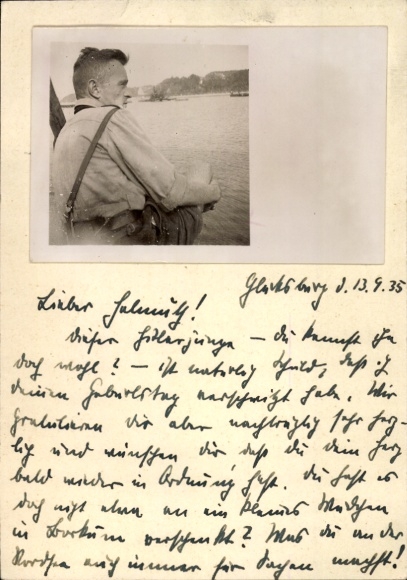 Glücksburg d. 13.9.35
Lieber Helmuth!
Dieser Hitlerjunge – du kennst ihn
doch wohl? – ist natürlich Schuld, daß ich
deinen Geburtstag verschwitzt habe. Wir
gratulieren dir aber nachträglich sehr herz-
lich und wünschen dir, daß du dein Herz
bald wieder in Ordnung hast. Du hast es
doch nicht etwa an ein kleines Mädchen
in Borkum verschenkt? Was du an der
Nordsee auch immer für Sachen machst!